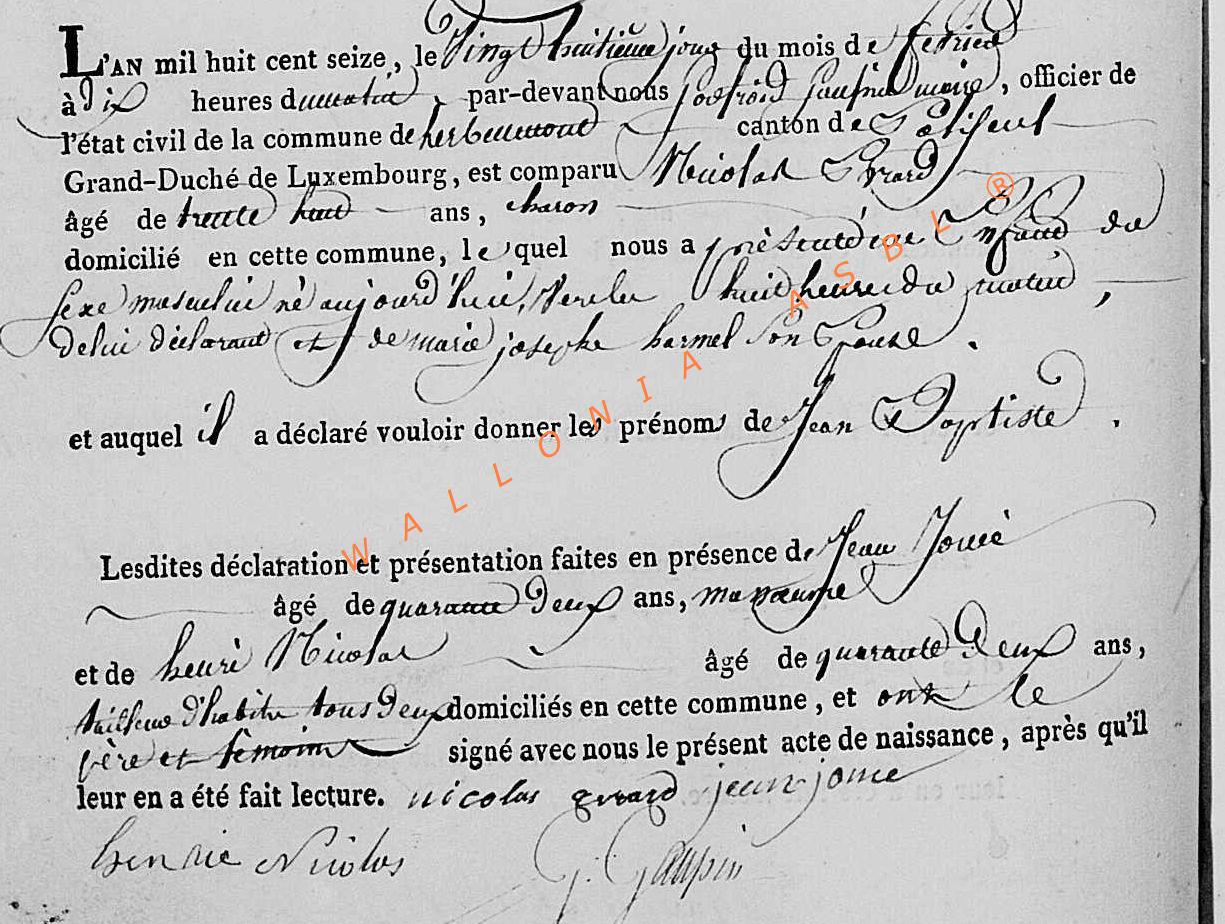 L'AN mil huit cent seize, le Vingt huitieme jour du mois de fevrier
à Dix heures du matin, par-devant nous Godfroid Gaupin maire, officier de
l'état civil de la commune de herbeumont canton de Paliseul
Grand-Duché de Luxembourg, est comparu Nicolas Evrard
âgé de trente huit ans, charon
domicilié en cette commune, lequel nous a présenté un Enfant du
sexe masculin né aujourd'hui, vers les huit heures du matin,
de lui déclarant et de marie josephe harmel son Epouse.
et auquel il a déclaré vouloir donner les prénoms de Jean Baptiste.
Lesdites déclaration et présentation faites en présence de Jean
âgé de quarante Deux ans, manoeuvre
et de henri Nicolas âgé de quarante Deux ans,
tailleur d'habits tous Deux domiciliés en cette commune, et ont le
père et témoins signé avec nous le présent acte de naissance, après qu'il
leur en a été fait lecture. nicolas evrard jean
henrie Nicolas G. Gaupin
WALLONIA ASBL ®